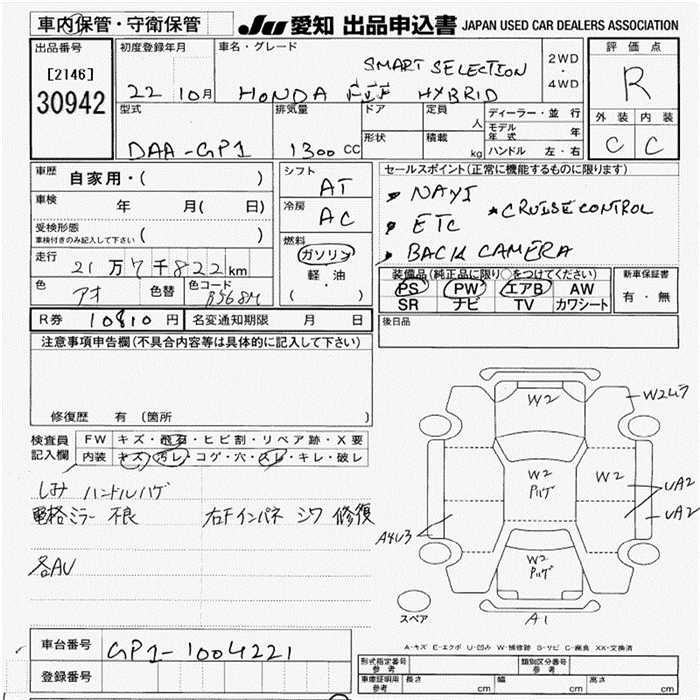 車内保管・守衛保管
JU 愛知 出品申込書 JAPAN USED CAR DEALERS ASSOCIATION
出品番号
[2146]
30942
初度登録年月
22 10月
車名・グレード
SMART SELECTION
HONDA FIT HYBRID
2WD
・
4WD
評価点
R
外装 内装
C C
型式
DAA-GP1
排気量
1300 CC
ドア
形状
定員
人
積載
kg
ディーラー・並 行
モデル年式 年
ハンドル 左・右
車歴
自家用・( )
車検
年 月( 日)
受検形態
車検付きのみ記入して下さい ( )
走行
21万7千822km
色
アオ
色替
色コード
B568M
シフト
AT
冷房
AC
燃料
ガソリン
軽・油
( )
セールスポイント(正常に機能するものに限ります)
NAVI
ETC
★CRUISE CONTROL
BACK CAMERA
装備品(純正品に限り○をつけてください)
PS PW エアB AW
SR ナビ TV カワシート
新車保証書
有・無
R券 10810円
名変通知期限 月 日
後日品
注意事項申告欄(不具合内容等は具体的に記入して下さい)
修復歴 有(箇所 )
検査員
記入欄
FW キズ・飛石・ヒビ割・リペア跡・X要
内装 キズ・汚レ・コゲ・穴・スレ・キレ・破レ
しみ ハンドルハゲ
電格ミラー 不良 右Fインパネ シワ 修復
各AU
W2
W2ムラ
W2
Pハゲ
W2
UA2
UA2
A4U3
W2
Pハゲ
A1
スペア
A-キズ E-エクボ U-凹み W-補修跡 S-サビ C-腐食 XX-交換済
車台番号
GP1-1004221
登録番号
形式指定番号
参考
類別区分番号
参考
車庫証明用
参考
長さ cm
幅 cm
高さ cm